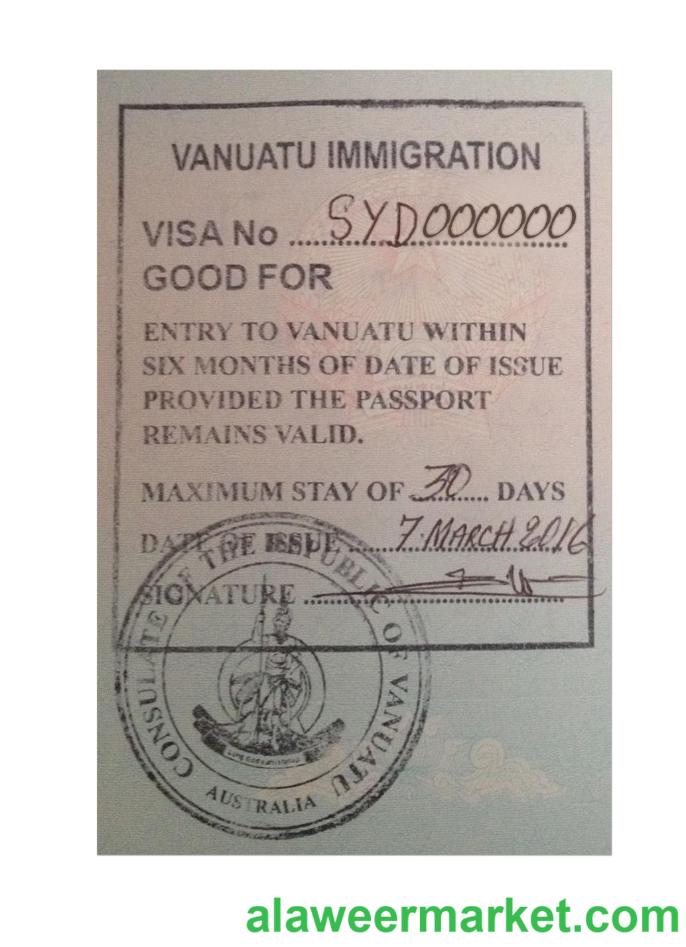 VANUATU IMMIGRATION
VISA No ....SYD000000
GOOD FOR
ENTRY TO VANUATU WITHIN
SIX MONTHS OF DATE OF ISSUE
PROVIDED THE PASSPORT
REMAINS VALID.
MAXIMUM STAY OF 30 DAYS
DATE OF ISSUE ....7 MARCH 2016
SIGNATURE
CONSULATE OF THE REPUBLIC OF VANUATU
AUSTRALIA
alaweermarket.com